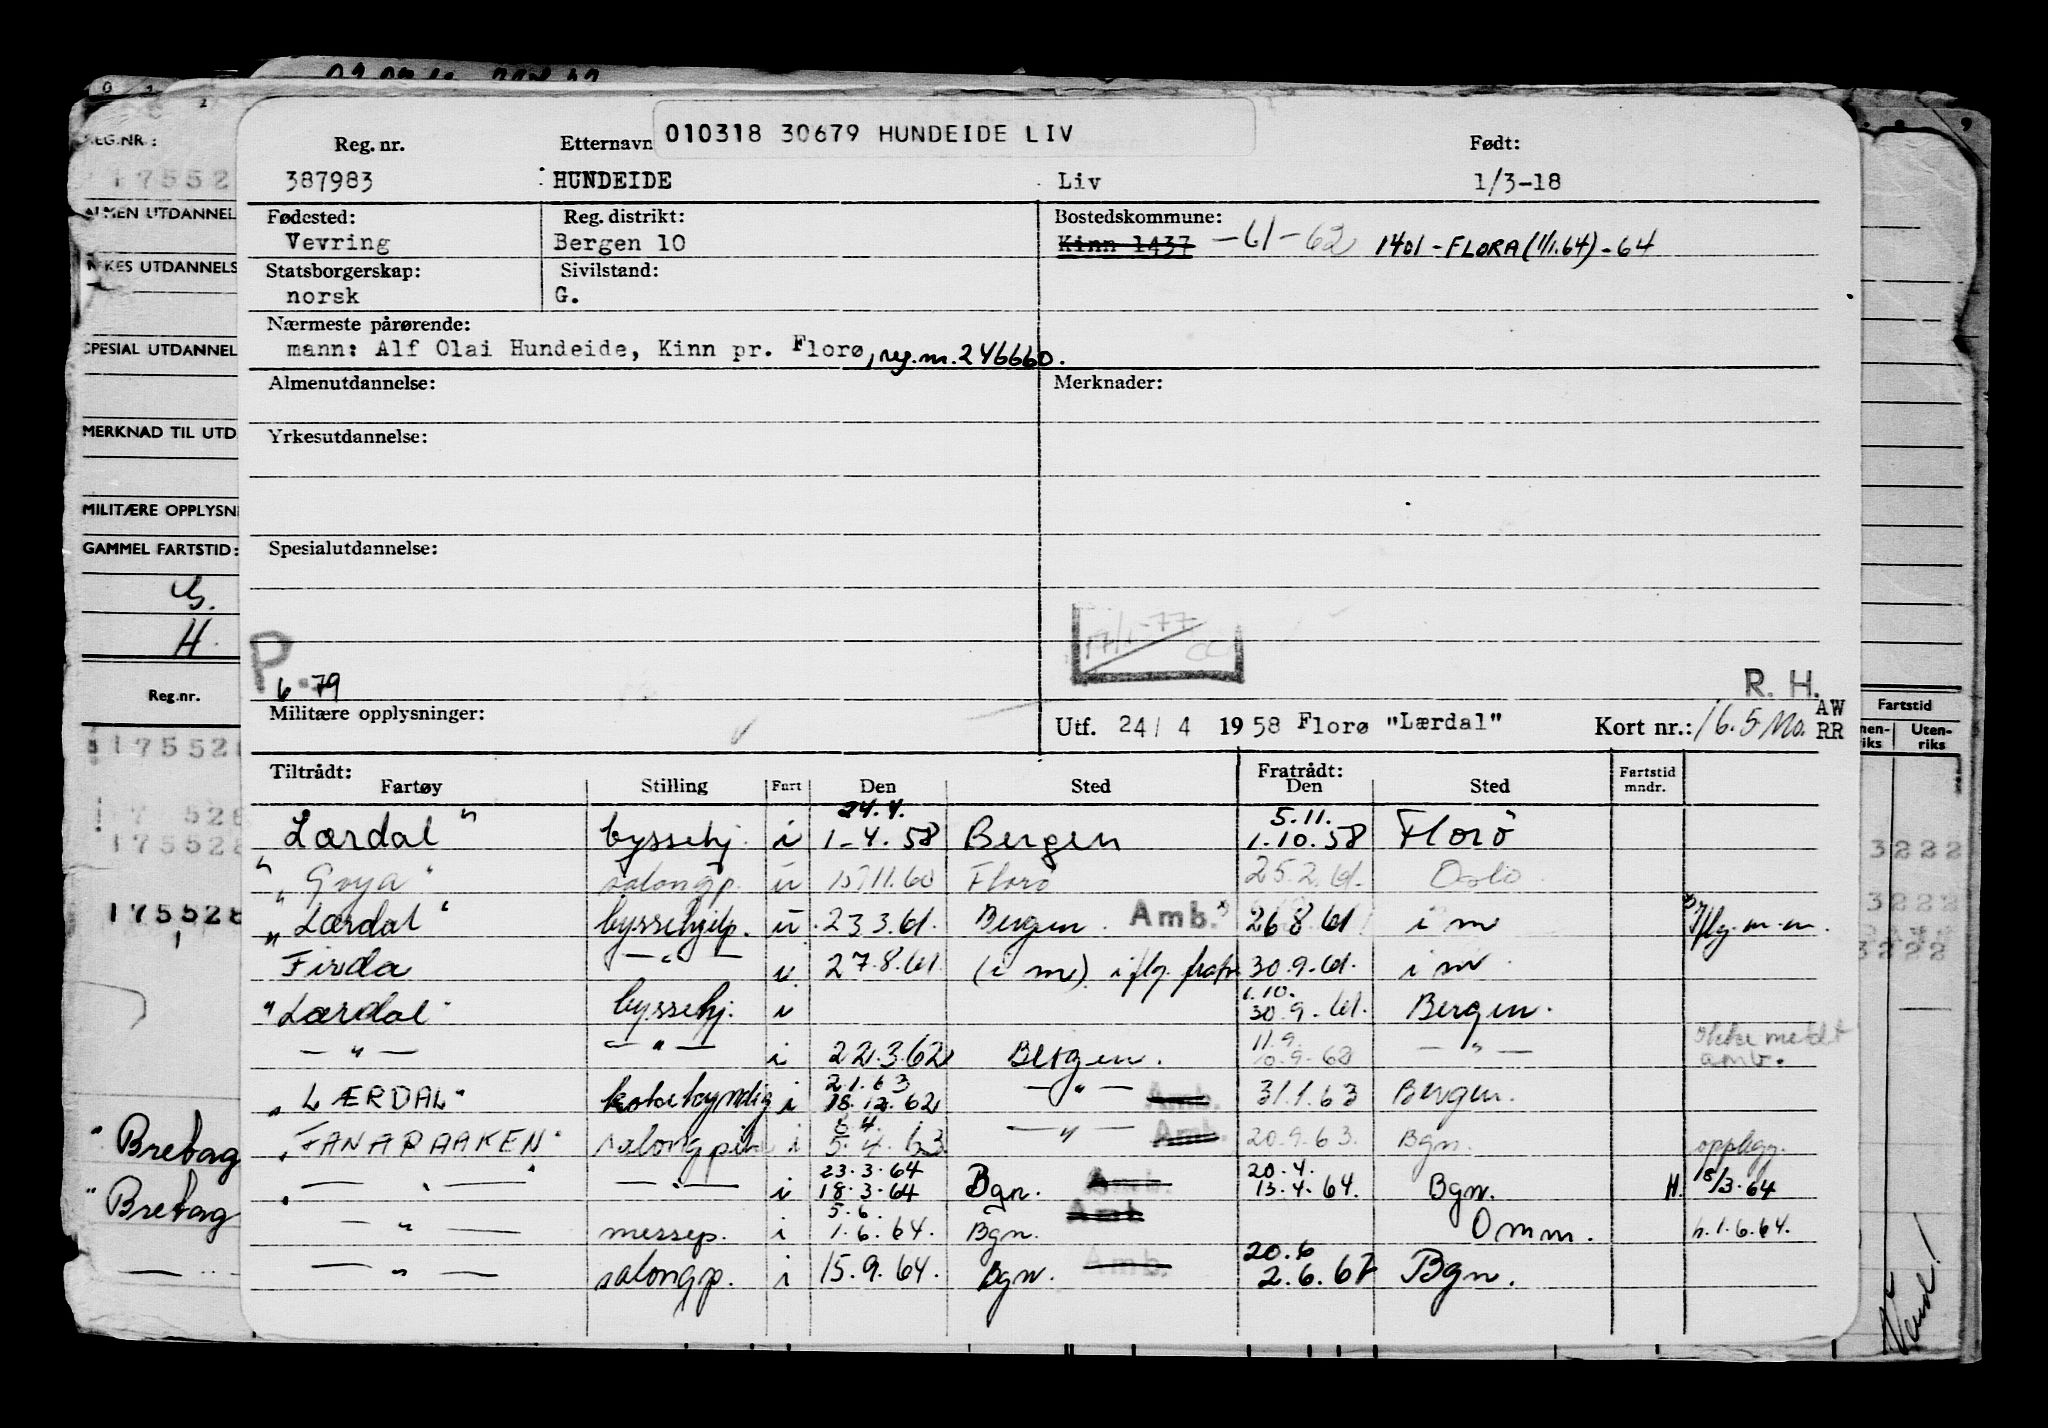 010318 30679 HUNDEIDE LIV
Reg. nr. Etternavn Født:
387983 HUNDEIDE Liv 1/3-18
Fødested: Reg. distrikt: Bostedskommune:
Vevring Bergen 10 Kinn 1437 -61-62 1401-FLORA (1/1.64)-64
Statsborgerskap: Sivilstand:
norsk G.
Nærmeste pårørende:
mann: Alf Olai Hundeide, Kinn pr. Florø, reg.nr. 246660.
Almenutdannelse: Merknader:
Yrkesutdannelse:
Spesialutdannelse:
17/1-77
P 6.79 R. H.
Militære opplysninger: Utf. 24/4 1958 Florø "Lærdal" Kort nr.: 16.5 Mo. AW RR
Tiltrådt: Fratrådt: Fartstid
Fartøy Stilling Fart Den Sted Den Sted mndr.
24.4. 5.11.
Lærdal" byssehj. i 1-4.58 Bergen 1.10.58 Florø
" Goya " salongp. u 11.60 Florø 25.2.61. Oslo
"Lærdal" byssehjelp. u 23 3.61. Bergen Amb.* 26.8.61 i m
" Firda — " — u. 27.8.61. (i m) iflg. fratr 30.9.61. i m
1.10.
"Lærdal" byssehj. i 30.9.61. Bergen.
11.9. Ikke meldt
— " — — " — i 22.3.62 Bergen. 10.9.62 — " — amb.
2.1.63
"LÆRDAL" kokekyndig i 18.12.62 — " — Amb. 31.1.63 Bergen.
"FANARAAKEN" i 5.4.63 — " — Amb. 20.9.63. Bgn. opplegg.
23.3.64 20.4.
— " — — " — i 18.3.64 Bgn. Amb. 13.4.64. Bgn. H. 18/3-64
5.6.
— " — messep. i 1.6.64. Bgn. Amb Omm. h.1.6.64.
20.6
— " — salongp. i 15.9.64. Bgn. Amb. 2.6.67 Bgn.
REG.NR.:
17552
ALMEN UTDANNEL
YRKES UTDANNELS
SPESIAL UTDANNEL
MERKNAD TIL UTD
MILITÆRE OPPLYSN
GAMMEL FARTSTID:
H.
Reg.nr.
175528
175528
175528
"Bretag
"Bretag
Fartstid
nen-riks Uten-riks
3222
3222
3222